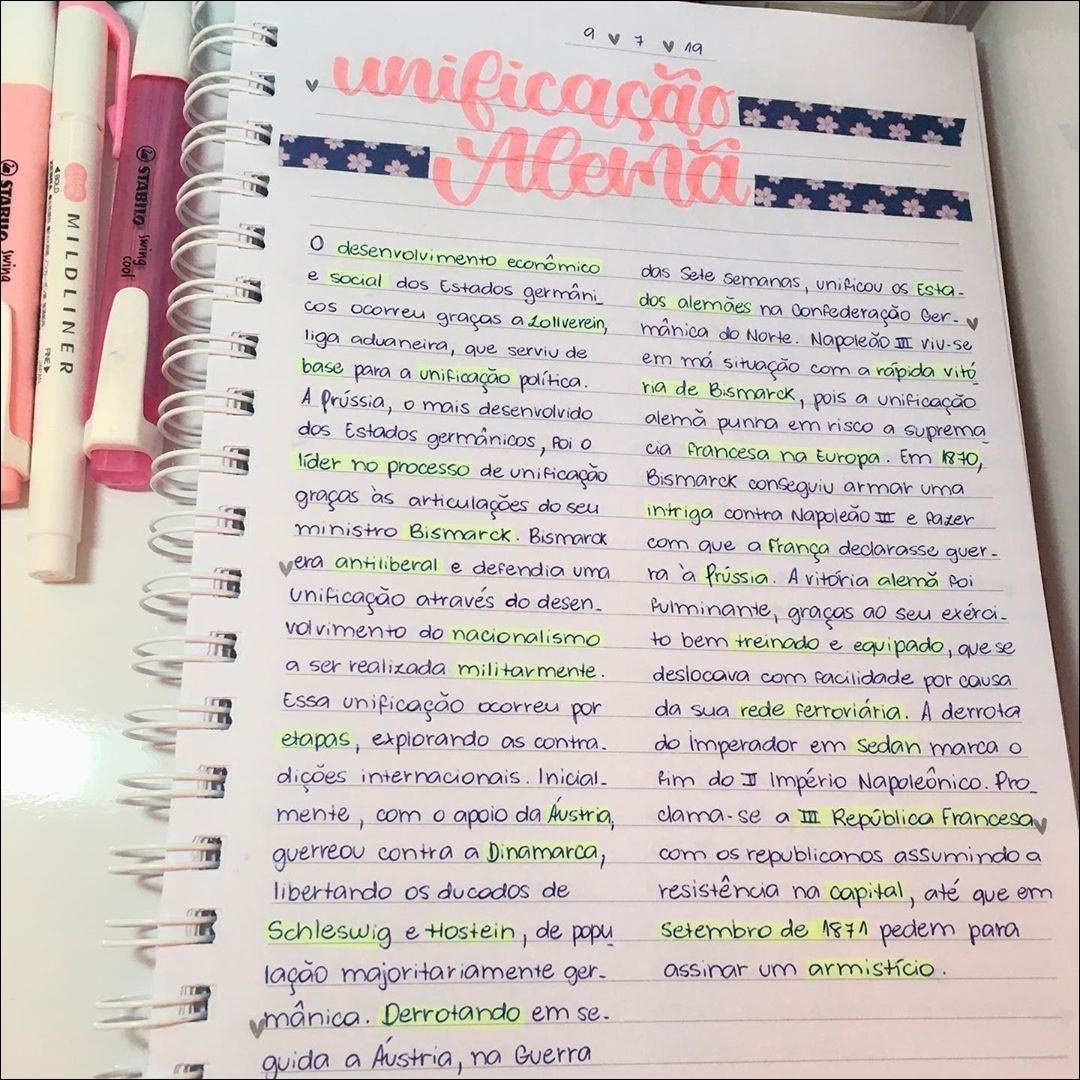 9 ♥ 7 ♥ 19
unificação
Alemã
O desenvolvimento econômico
e social dos Estados germâni_
cos ocorreu graças a Zollverein,
liga aduaneira, que serviu de
base para a unificação política.
A Prússia, o mais desenvolvido
dos Estados germânicos, foi o
líder no processo de unificação
graças às articulações do seu
ministro Bismarck. Bismarck
era antiliberal e defendia uma
unificação através do desen_
volvimento do nacionalismo
a ser realizada militarmente.
Essa unificação ocorreu por
etapas, explorando as contra_
dições internacionais. Inicial_
mente, com o apoio da Áustria,
guerreou contra a Dinamarca,
libertando os ducados de
Schleswig e Hostein, de popu
lação majoritariamente ger_
mânica. Derrotando em se_
guida a Áustria, na Guerra
das Sete semanas, unificou os Esta_
dos alemães na Confederação Ger_
mânica do Norte. Napoleão III viu-se
em má situação com a rápida vitó
ria de Bismarck, pois a unificação
alemã punha em risco a suprema
cia francesa na Europa. Em 1870,
Bismarck conseguiu armar uma
intriga contra Napoleão III e fazer
com que a França declarasse guer_
ra à Prússia. A vitória alemã foi
fulminante, graças ao seu exérci_
to bem treinado e equipado, que se
deslocava com facilidade por causa
da sua rede ferroviária. A derrota
do imperador em Sedan marca o
fim do II Império Napoleônico. Pro_
clama-se a III República Francesa
com os republicanos assumindo a
resistência na capital, até que em
Setembro de 1871 pedem para
assinar um armistício.
STABILO swing
BOLD
MILDLINER
FINE
STABILO swing
cool